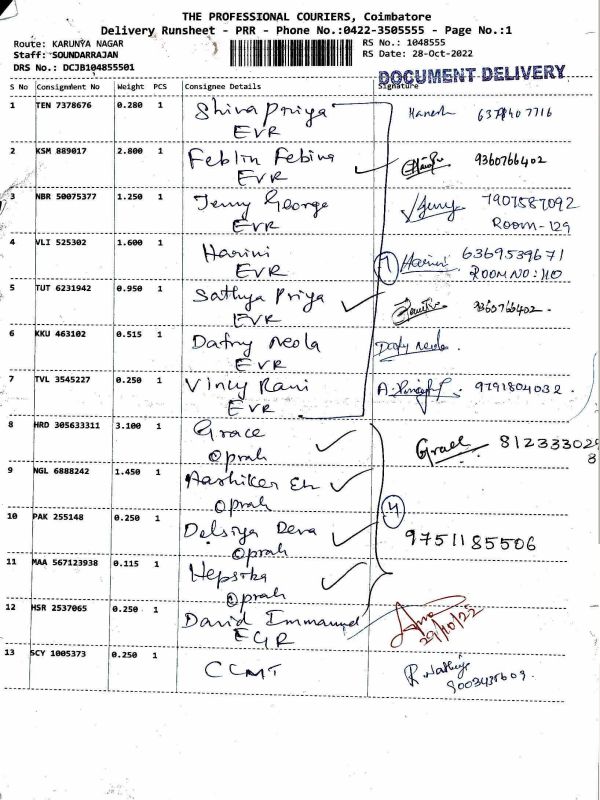 THE PROFESSIONAL COURIERS, Coimbatore
Delivery Runsheet - PRR - Phone No.:0422-3505555 - Page No.:1
Route: KARUNYA NAGAR
RS No.: 1048555
Staff: SOUNDARRAJAN
RS Date: 28-Oct-2022
DRS No.: DCJB104855501
DOCUMENT DELIVERY
S No Consignment No Weight PCS Consignee Details Signature
1 TEN 7378676 0.280 1 Shiva Priya
EVR
2 KSM 889017 2.800 1 Feblin Febina 9360766402
EVR
3 NBR 50075377 1.250 1 Jenny George Jenny 7907587092
EVR Room-129
4 VLI 525302 1.600 1 Harini 7 Harini 6369539671
EVR ROOM NO: 110
5 TUT 6231942 0.950 1 Sathya Priya 9360766402.
EVR
6 KKU 463102 0.515 1
EVR
7 TVL 3545227 0.250 1 Vincy Rani 9791804032.
EVR
8 HRD 305633311 3.100 1 Grace
Oprah
9 NGL 6888242 1.450 1
Oprah
10 PAK 255148 0.250 1 4 9751185506
Oprah
11 MAA 567123938 0.115 1
Oprah
12 HSR 2537065 0.250 1 David Immanuel
29/10/22
13 SCY 1005373 0.250 1 CCMT